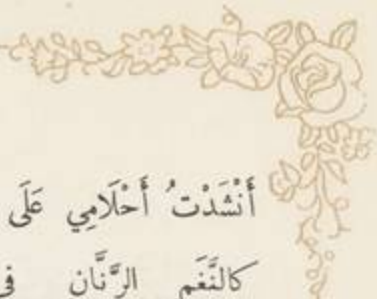 أَنْشَدْتُ أَحْلَامِي عَلَى
كالنَّغَمِ الرَّنَّان فى